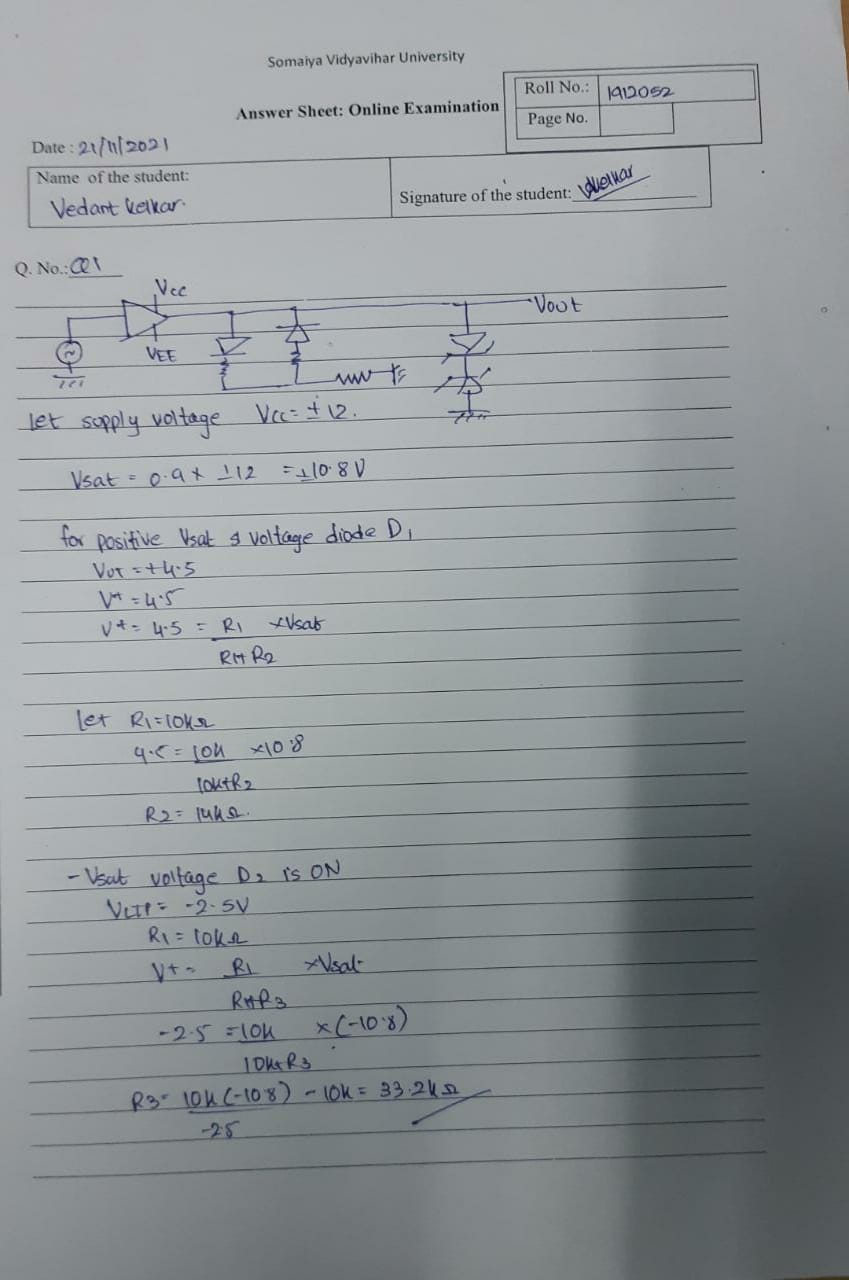 Somaiya Vidyavihar University
Answer Sheet: Online Examination
Roll No.: 1912052
Page No.
Date : 21/11/2021
Name of the student:
Vedant Kelkar.
Signature of the student: Vkelkar
Q. No.: Q1
Vcc
Vout
VEE
let supply voltage Vcc = ± 12.
Vsat = 0.9 x ±12 = ±10.8 V
for positive Vsat voltage diode D1
VUT = +4.5
V+ = 4.5
V+ = 4.5 = R1 x Vsat
R1+ R2
let R1 = 10KΩ
4.5 = 10K x 10.8
10K+R2
R2 = 14KΩ.
- Vsat voltage D2 is ON
VLTP = -2.5V
R1 = 10KΩ
V+ = R1 x Vsat
R1+R3
-2.5 = 10K x (-10.8)
10K+R3
R3 = 10K (-10.8) - 10K = 33.2KΩ
-25